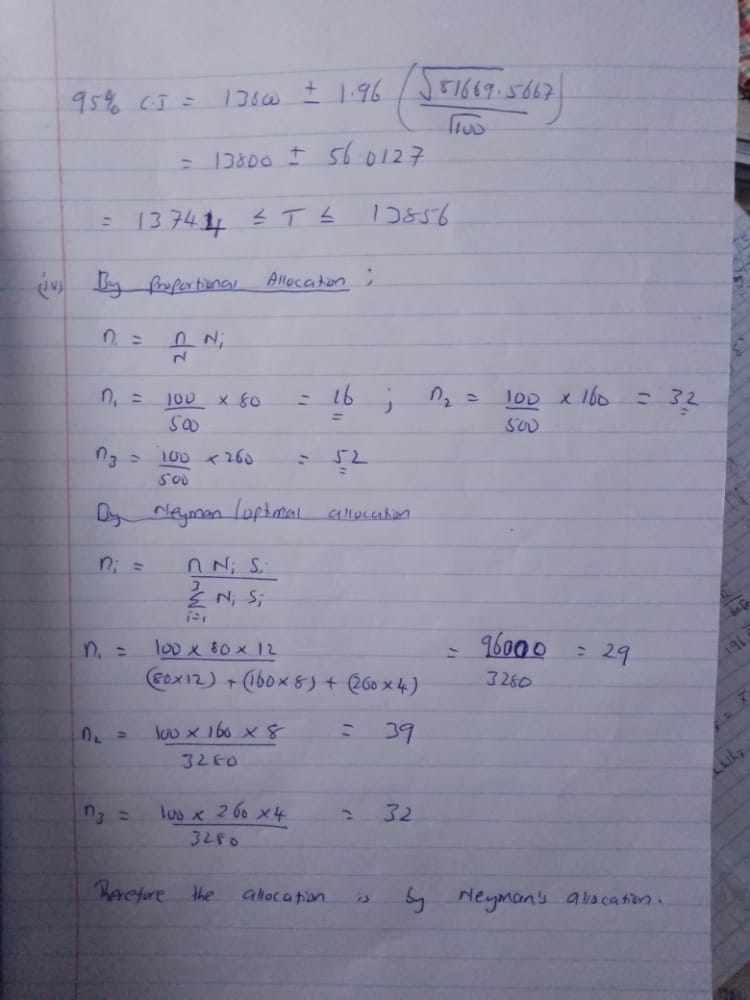 95% C.I = 13800 ± 1.96 (√81669.5667 / √100)
= 13800 ± 56.0127
= 13744 ≤ T ≤ 13856
(iv) By Proportional Allocation ;
nᵢ = n/N Nᵢ
n₁ = 100/500 × 80 = 16 ; n₂ = 100/500 × 160 = 32
n₃ = 100/500 × 260 = 52
By Neyman/optimal allocation
nᵢ = n Nᵢ Sᵢ / 3 Σ i=1 Nᵢ Sᵢ
n₁ = 100 × 80 × 12 / (80×12) + (160×8) + (260×4) = 96000 / 3280 = 29
n₂ = 100 × 160 × 8 / 3280 = 39
n₃ = 100 × 260 × 4 / 3280 = 32
Therefore the allocation is by Neyman's allocation.